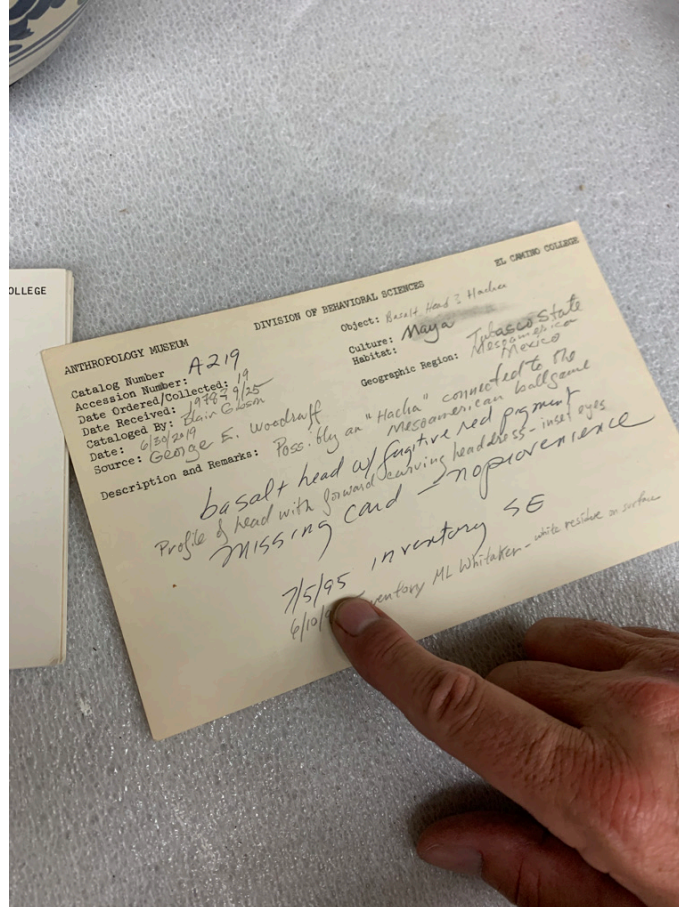 OLLEGE
ANTHROPOLOGY MUSEUM
DIVISION OF BEHAVIORAL SCIENCES
EL CAMINO COLLEGE
Catalog Number A219
Accession Number: 19
Date Ordered/Collected:
Date Received: 9/25
Cataloged By: Blair Gibson
Date: 6/20/2019
Source: George E. Woodruff
Object: Basalt Head ? Hacha
Culture: Maya
Habitat:
Geographic Region: State
Mesoamerica
Mexico
Description and Remarks: Possibly an "Hacha" connected to the
Mesoamerican ballgame
basalt head w/ fugitive red pigment
Profile of head with forward curving headdress - inset eyes
missing card - no provenience
7/5/95 inventory SE
6/10/ ML Whitaker - white residue on surface